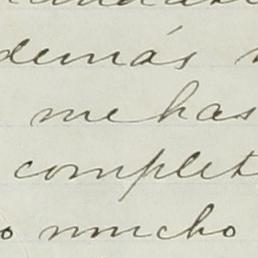 demás
me has
complet
o mucho